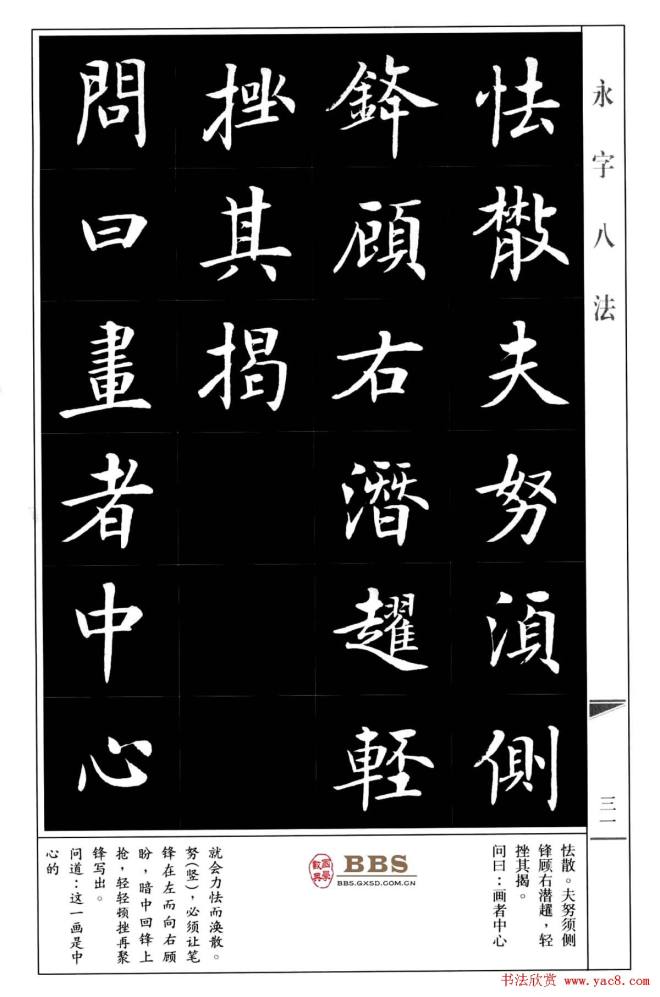 永字八法
三一
怯散夫努湏側
鋒顧右潛趯輕
挫其揭
問曰畫者中心
怯散。夫努须侧
锋顾右潜趯，轻
挫其揭。
问曰：画者中心
BBS
BBS.GXSD.COM.CN
就会力怯而涣散。
努(竖)，必须让笔
锋在左而向右顾
盼，暗中回锋上
抢，轻轻顿挫再聚
锋写出。
问道：这一画是中
心的
书法欣赏 www.yac8.com